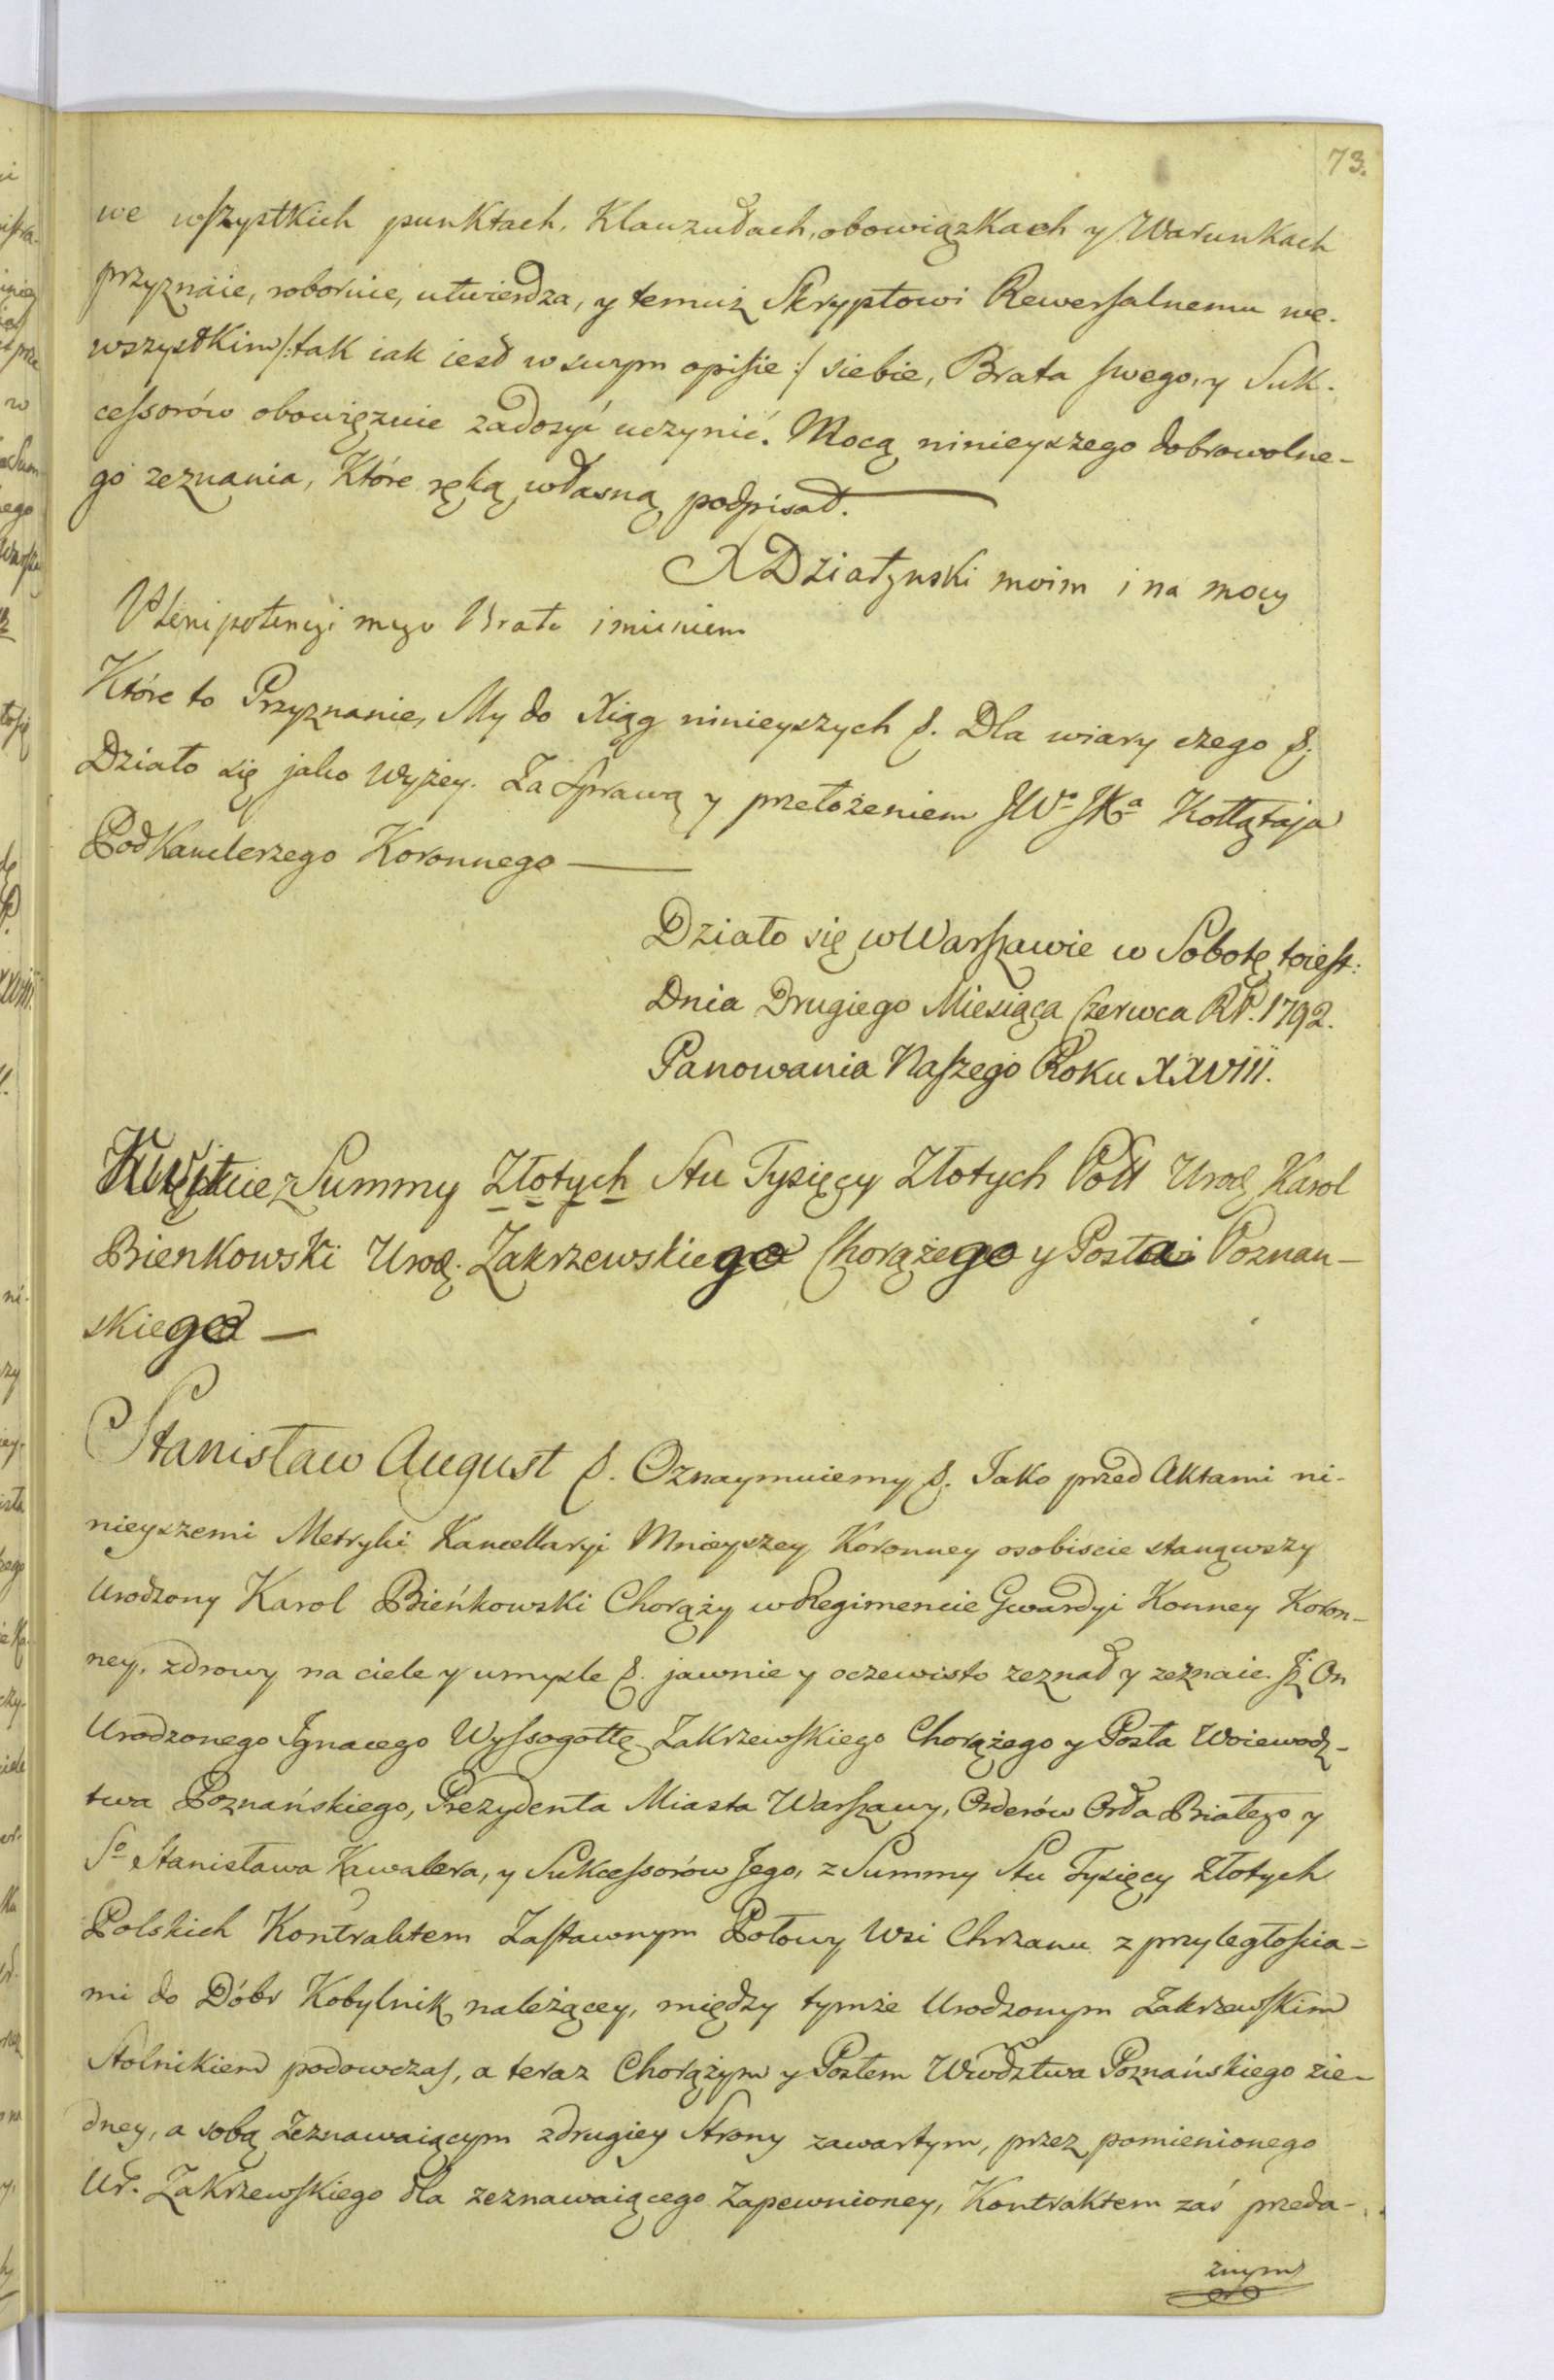 73.
we wszystkich punktach, Klauzułach, obowiązkach y Warunkach
przyznaie, roboruie, utwierdza, y temuż Skryptowi Rewersalnemu we-
wszystkim /: tak iak iest w swym opisie :/ siebie, Brata swego, y Suk-
cessorów obowięzuie zadosyć uczynić. Mocą ninieyszego dobrowolne-
go zeznania, Które ręką własną podpisał.
X Działynski moim i na mocy
Plenipotencyi mego Brata imieniem
Które to Przyznanie, My do Xiąg ninieyszych &. Dla wiary czego &.
Działo się jako wyżey. Za Sprawą y przełożeniem JWo JXa Kołłątaja
Podkanclerzego Koronnego —
Działo się w Warszawie w Sobotę toiest:
Dnia Drugiego Miesiąca Czerwca RP. 1792.
Panowania Naszego Roku XXVIII.
Kwituie z Summy Złotych Stu Tysięcy Złotych Poll Urodz Karol
Bienkowski Urodz. Zakrzewskiego Chorążego y Posła Poznan-
skiego —
Stanisław August &. Oznaymuiemy &. Iako przed Aktami ni-
nieyszemi Metryki Kancellaryi Mnieyszey Koronney osobiscie stanąwszy
Urodzony Karol Bieńkowski Chorąży w Regimencie Gwardyi Konney Koron-
ney, zdrowy na ciele y umysle &. jawnie y oczewisto zeznał y zeznaie. Jż On
Urodzonego Jgnacego Wyssogottę Zakrzewskiego Chorążego y Posła Woiewodz-
twa Poznańskiego, Prezydenta Miasta Warszawy, Orderów Orła Białego y
So Stanisława Kawalera, y Sukcessorów Jego, z Summy Stu Tysięcy Złotych
Polskich Kontraktem Zastawnym Połowy Wsi Chrzanu z przyległoscia-
mi do Dóbr Kobylnik należącey, między tymże Urodzonym Zakrzewskim
Stolnikiem podowczas, a teraz Chorążym y Posłem Wwodztwa Poznańskiego zie-
dney, a sobą Zeznawaiącym z drugiey Strony zawartym, przez pomienionego
Ur. Zakrzewskiego dla zeznawaiącego Zapewnioney, Kontraktem zaś przeda-
żnym